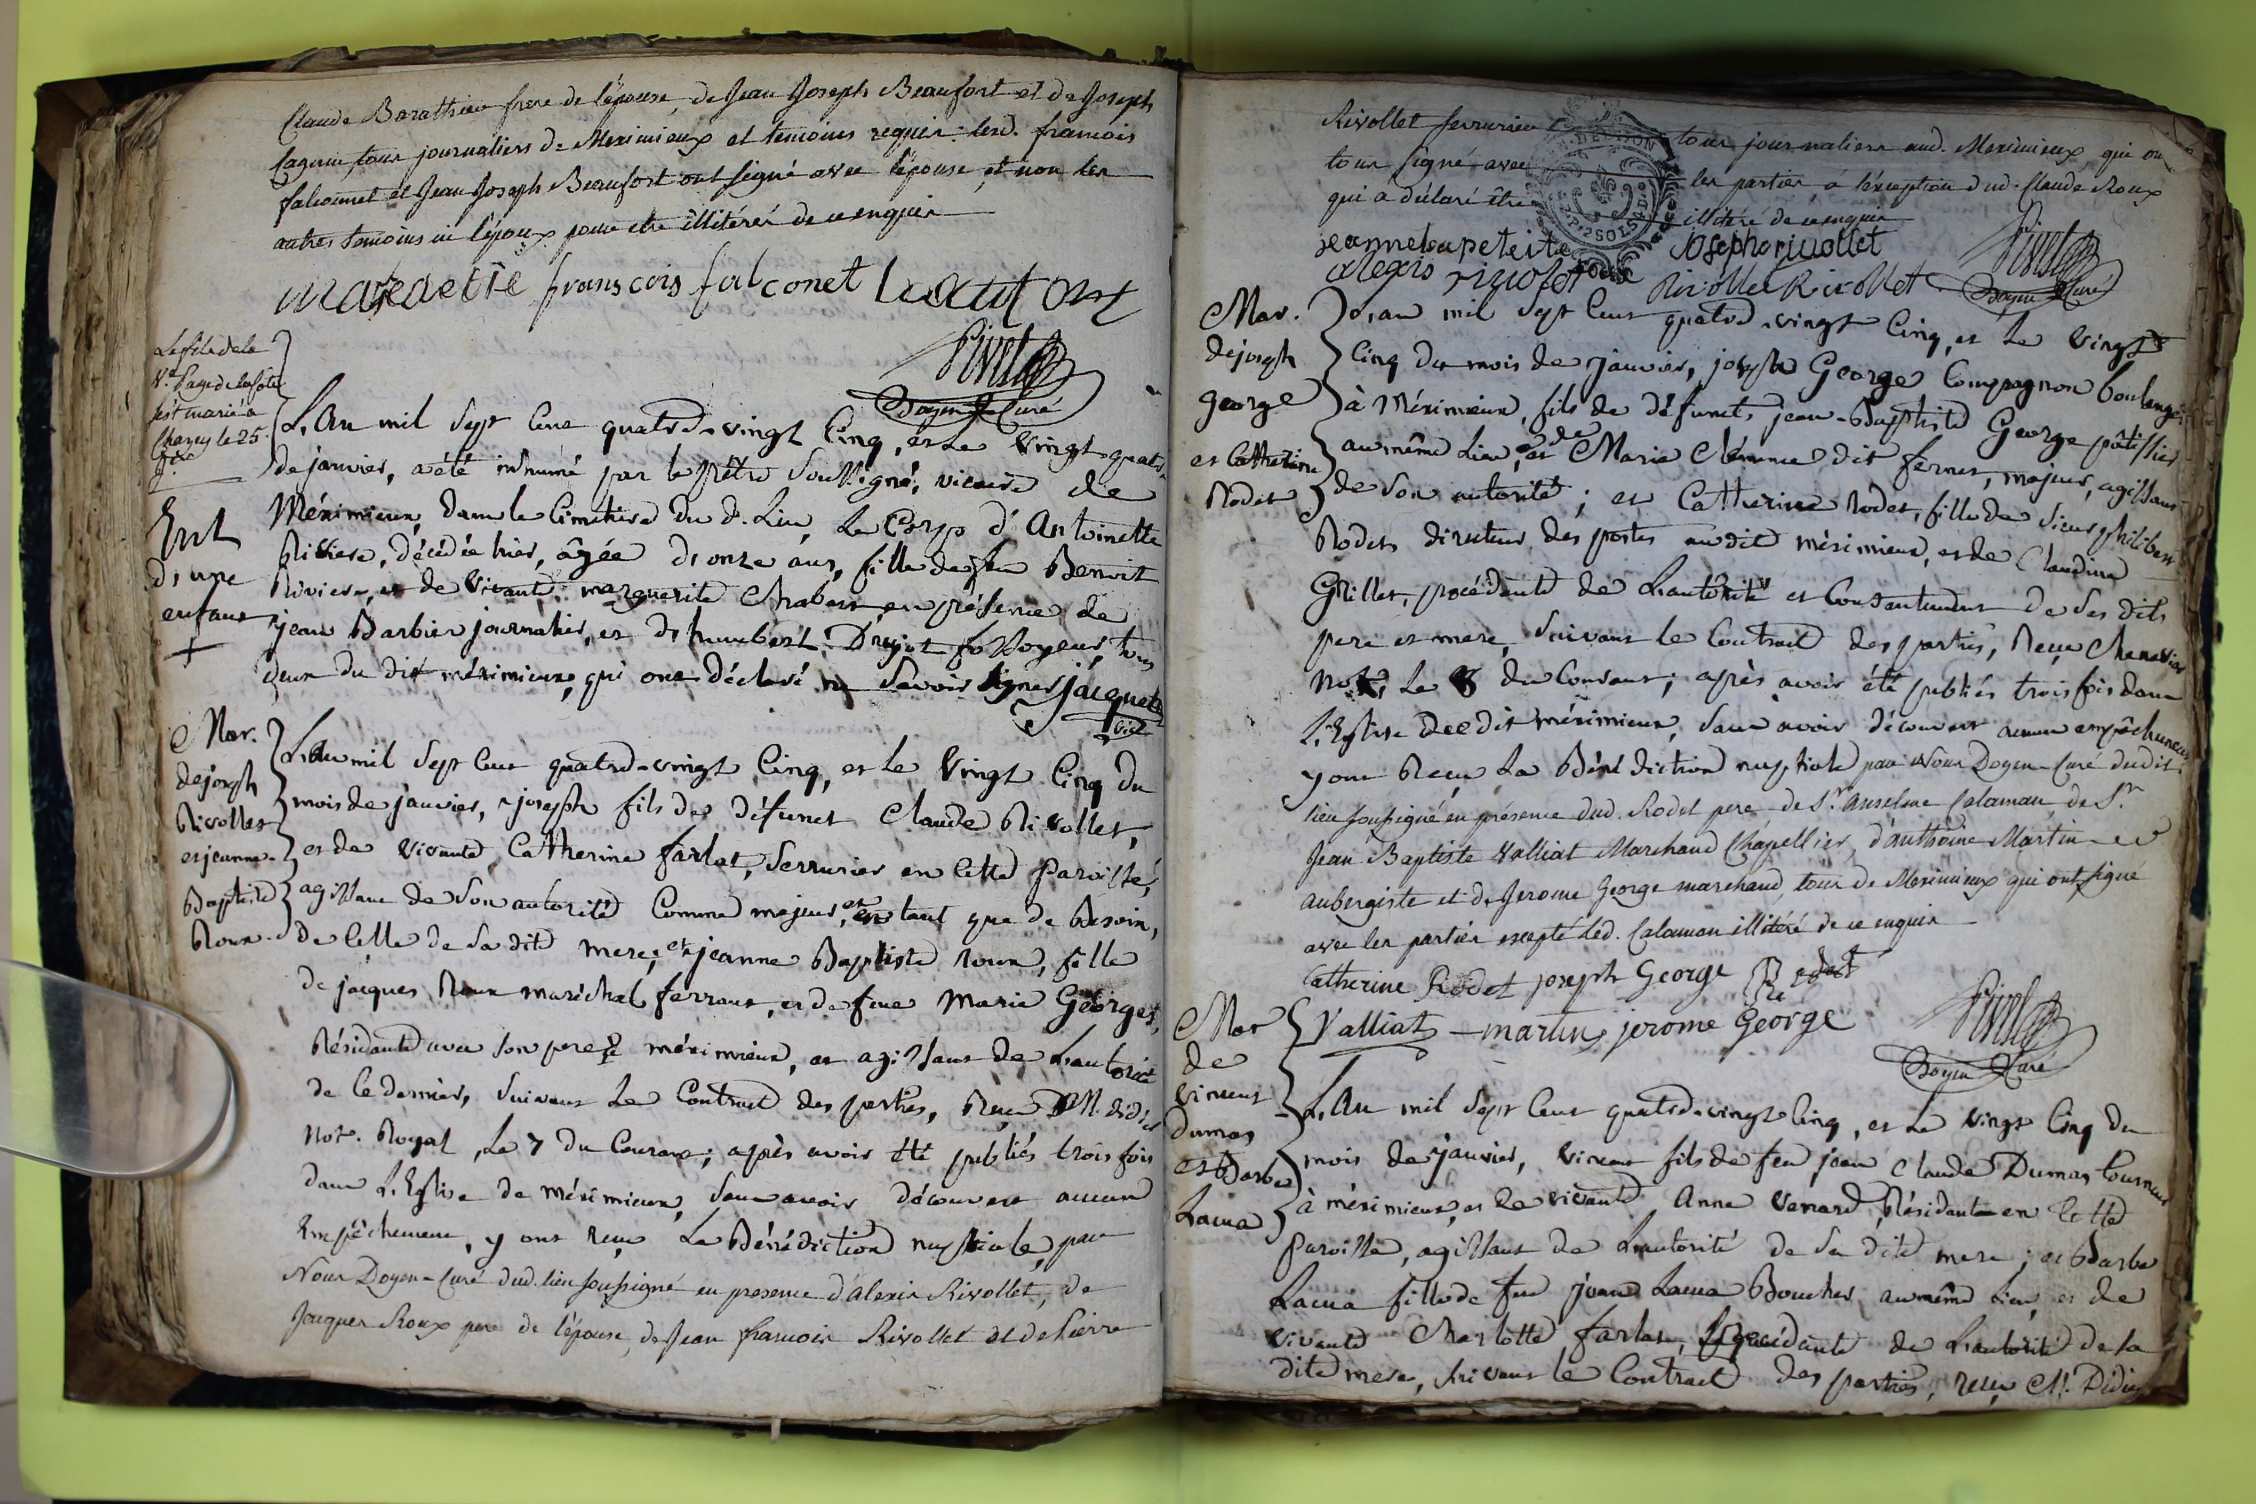 Claude Barathieu frere de l'épouse, de Jean Joseph Beaufort et de Joseph
tous journaliers de Meximieux et temoins requis: lesd. francois
falconnet et Jean Joseph Beaufort ont signé avec l'épouse, et non les
autres temoins ni l'époux pour etre illitérés de ce enquis
françois falconet
Pivet
Doyen Curé
Le fils de la
Ve. Page de la
s'est marié a
Charney le 25.
L'An mil Sept Cent quatre-vingt Cinq, et Le Vingt quatre
de janvier, a été inhumé par le prêtre Soussigné, vicaire de
Méximieux, dans le Cimetiere du d. Lieu, Le Corps d'Antoinette
Riviere, décédée hier, âgée d'onze ans, fille de feu Benoit
Riviere, et de Vivante marguerite Chabert, en présence de
jean Barbier journalier, et d'humbert Drujot fossoyeur, tous
deux du dit méximieux, qui ont déclaré ne Savoir Signer jacquet
vic.
Ent
d'une
enfant
+
Mar.
de joseph
Rivollet
et jeanne-
Baptiste
Roux.
L'An mil Sept Cent quatre-vingt Cinq, et le Vingt Cinq du
mois de janvier, joseph fils de défunct Claude Rivollet,
et de vivante Catherine farlat, Serrurier en Cette Paroisse,
agissant de Son autorité Comme majeur, et en tant que de Besoin,
de Celle de Sa dite mere; et jeanne Baptiste Roux, fille
de jacques Roux maréchal ferrant, et de feue Marie Georges,
Résidante avec son pere à méximieux, et agissant de L'autorité
de Ce dernier, Suivant Le Contract des parties, Reçu M. didier
Not. Royal, Le 7 du Courant; après avoir été publiés trois fois
dans L'Eglise de méximieux, Sans avoir découvert aucun
Empêchement, y ont reçu La Bénédiction nuptiale, par
Nous Doyen-Curé dud. lieu soussigné en presence d'alexis Rivollet, de
Jacques Roux pere de l'épouse, de Jean francois Rivollet et de Pierre
Rivollet serrurier tous journaliers aud. Meximieux, qui on
tous signé avec les parties à l'exception dud. Claude Roux
qui a déclaré être illitéré de ce enquis
jeanne bapetiste josephe rivollet
alexis rivolet Rivollet Rivollet
Pivet
Doyen Curé
Mar.
de joseph
George
et Catherine
Rodet
L'an mil Sept Cent quatre-vingt Cinq, et Le Vingt
Cinq du mois de janvier, joseph George Compagnon boulanger
à Méximieux, fils de défuncts jean-Baptiste George pâtissier
au même Lieu, et de Marie Clémence dit fernet, majeur, agissant
de Son autorité; et Catherine Rodet, fille de Sieur philibert
Rodet directeur des postes audit méximieux, et de Claudine
Grillet, procédante de L'autorité et Consentement de Ses dits
pere et mere, Suivant le Contract des parties, Reçu Chenevier
Not. Le 8 du Courant; après avoir été publiés trois fois dans
L'Eglise dedit méximieux, Sans avoir découvert aucun empêchement
y ont Reçu La Bénédiction nuptiale par Nous Doyen-Curé dudit
lieu soussigné en présence dud. Rodet pere de Sr. anselme Calaman de Sr.
Jean Baptiste Valliat Marchand Chapellier, d'anthoine Martin
aubergiste et de Jerome George marchand, tous de Meximieux qui ont signé
avec les parties excepté led. Calaman illitéré de ce enquis
Catherine Rodet joseph George Rodet
Valliat martin jerome George
Pivet
Doyen Curé
Mar
de
Vincent
Dumas
et Barbe
Lacua
L'An mil Sept Cent quatre-vingt Cinq, et Le Vingt Cinq du
mois de janvier, Vincent fils de feu jean Claude Dumas tourneur
à méximieux, et de vivante Anne Venard, Résidante en Cette
Paroisse, agissant de L'autorité de Sa dite mere; et Barbe
Lacua fille de feu jean Lacua Boucher au même Lieu, et de
vivante Charlotte farlat, procédante de L'autorité de Sa
dite mere, Suivant le Contract des parties, reçu M. Didier